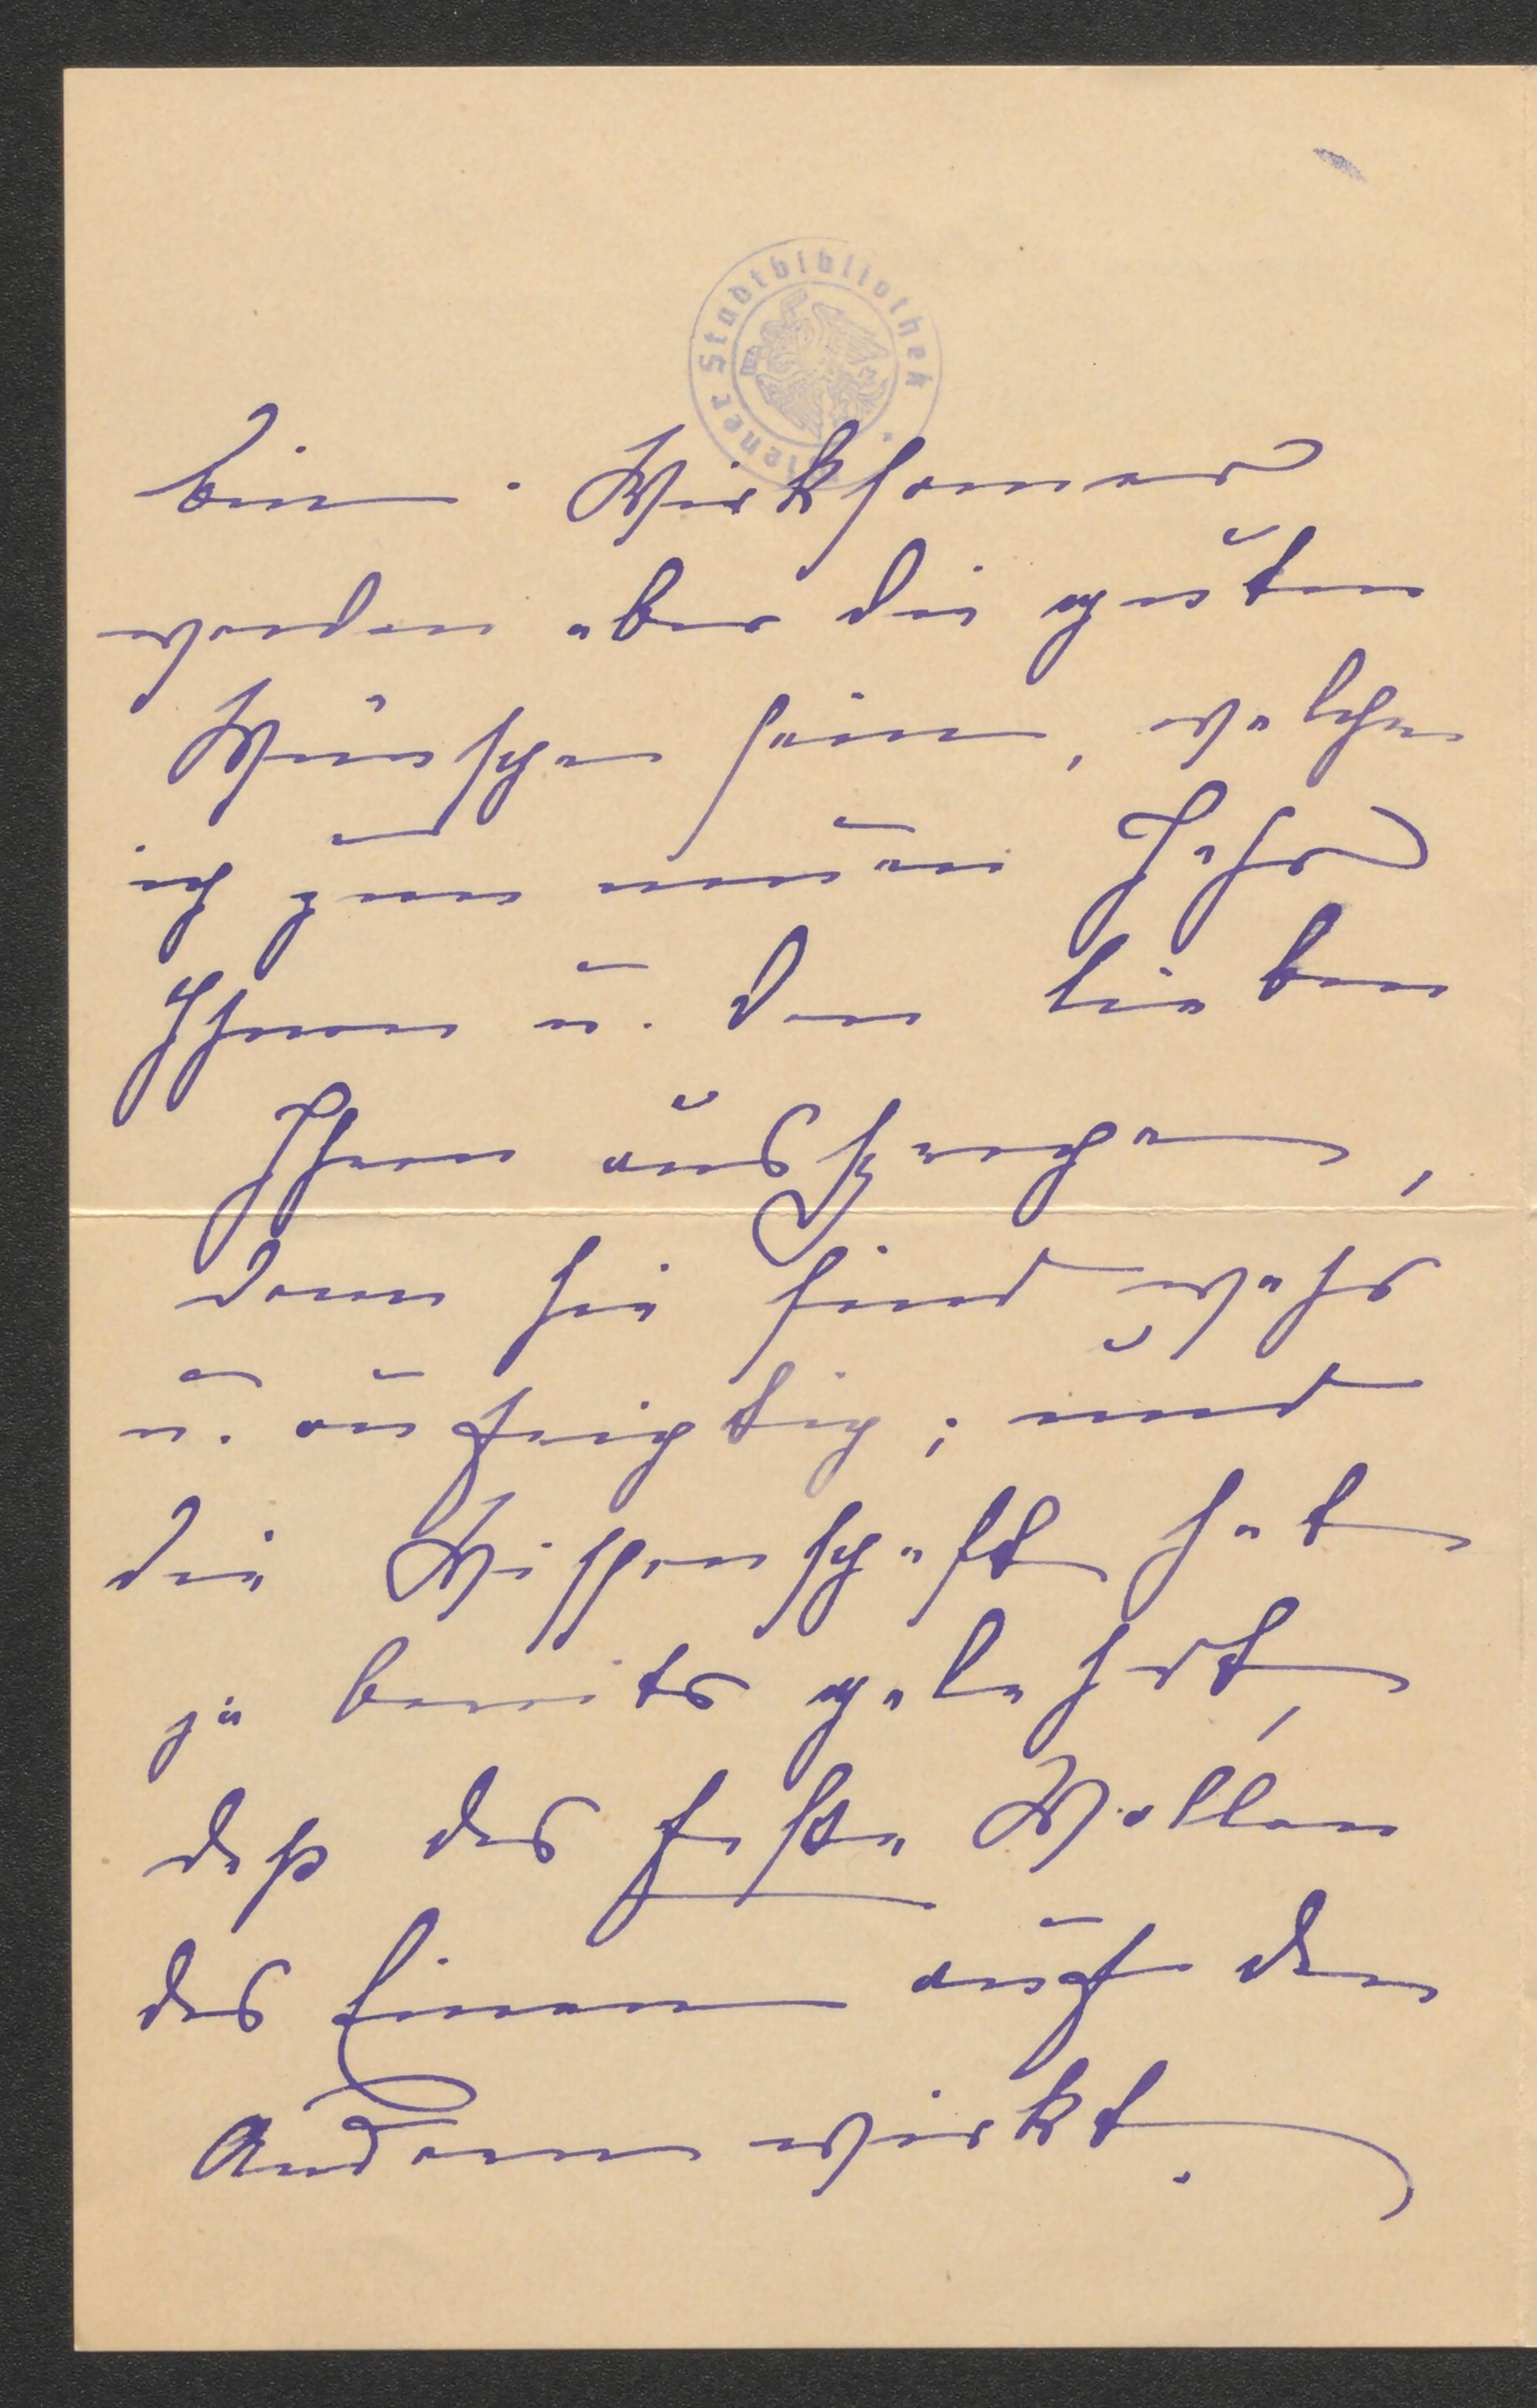 Wiener Stadtbibliothek
bin. Wirksamer
werden aber die guten
Wünsche sein, welche
ich zum neuen Jahr
Ihnen u. den lieben
Ihren ausspreche,
denn sie sind wahr
u. aufrichtig; und
die Wissenschaft hat
ja bereits gelehrt,
daß das feste Wollen
des Einen auf den
Andern wirkt.